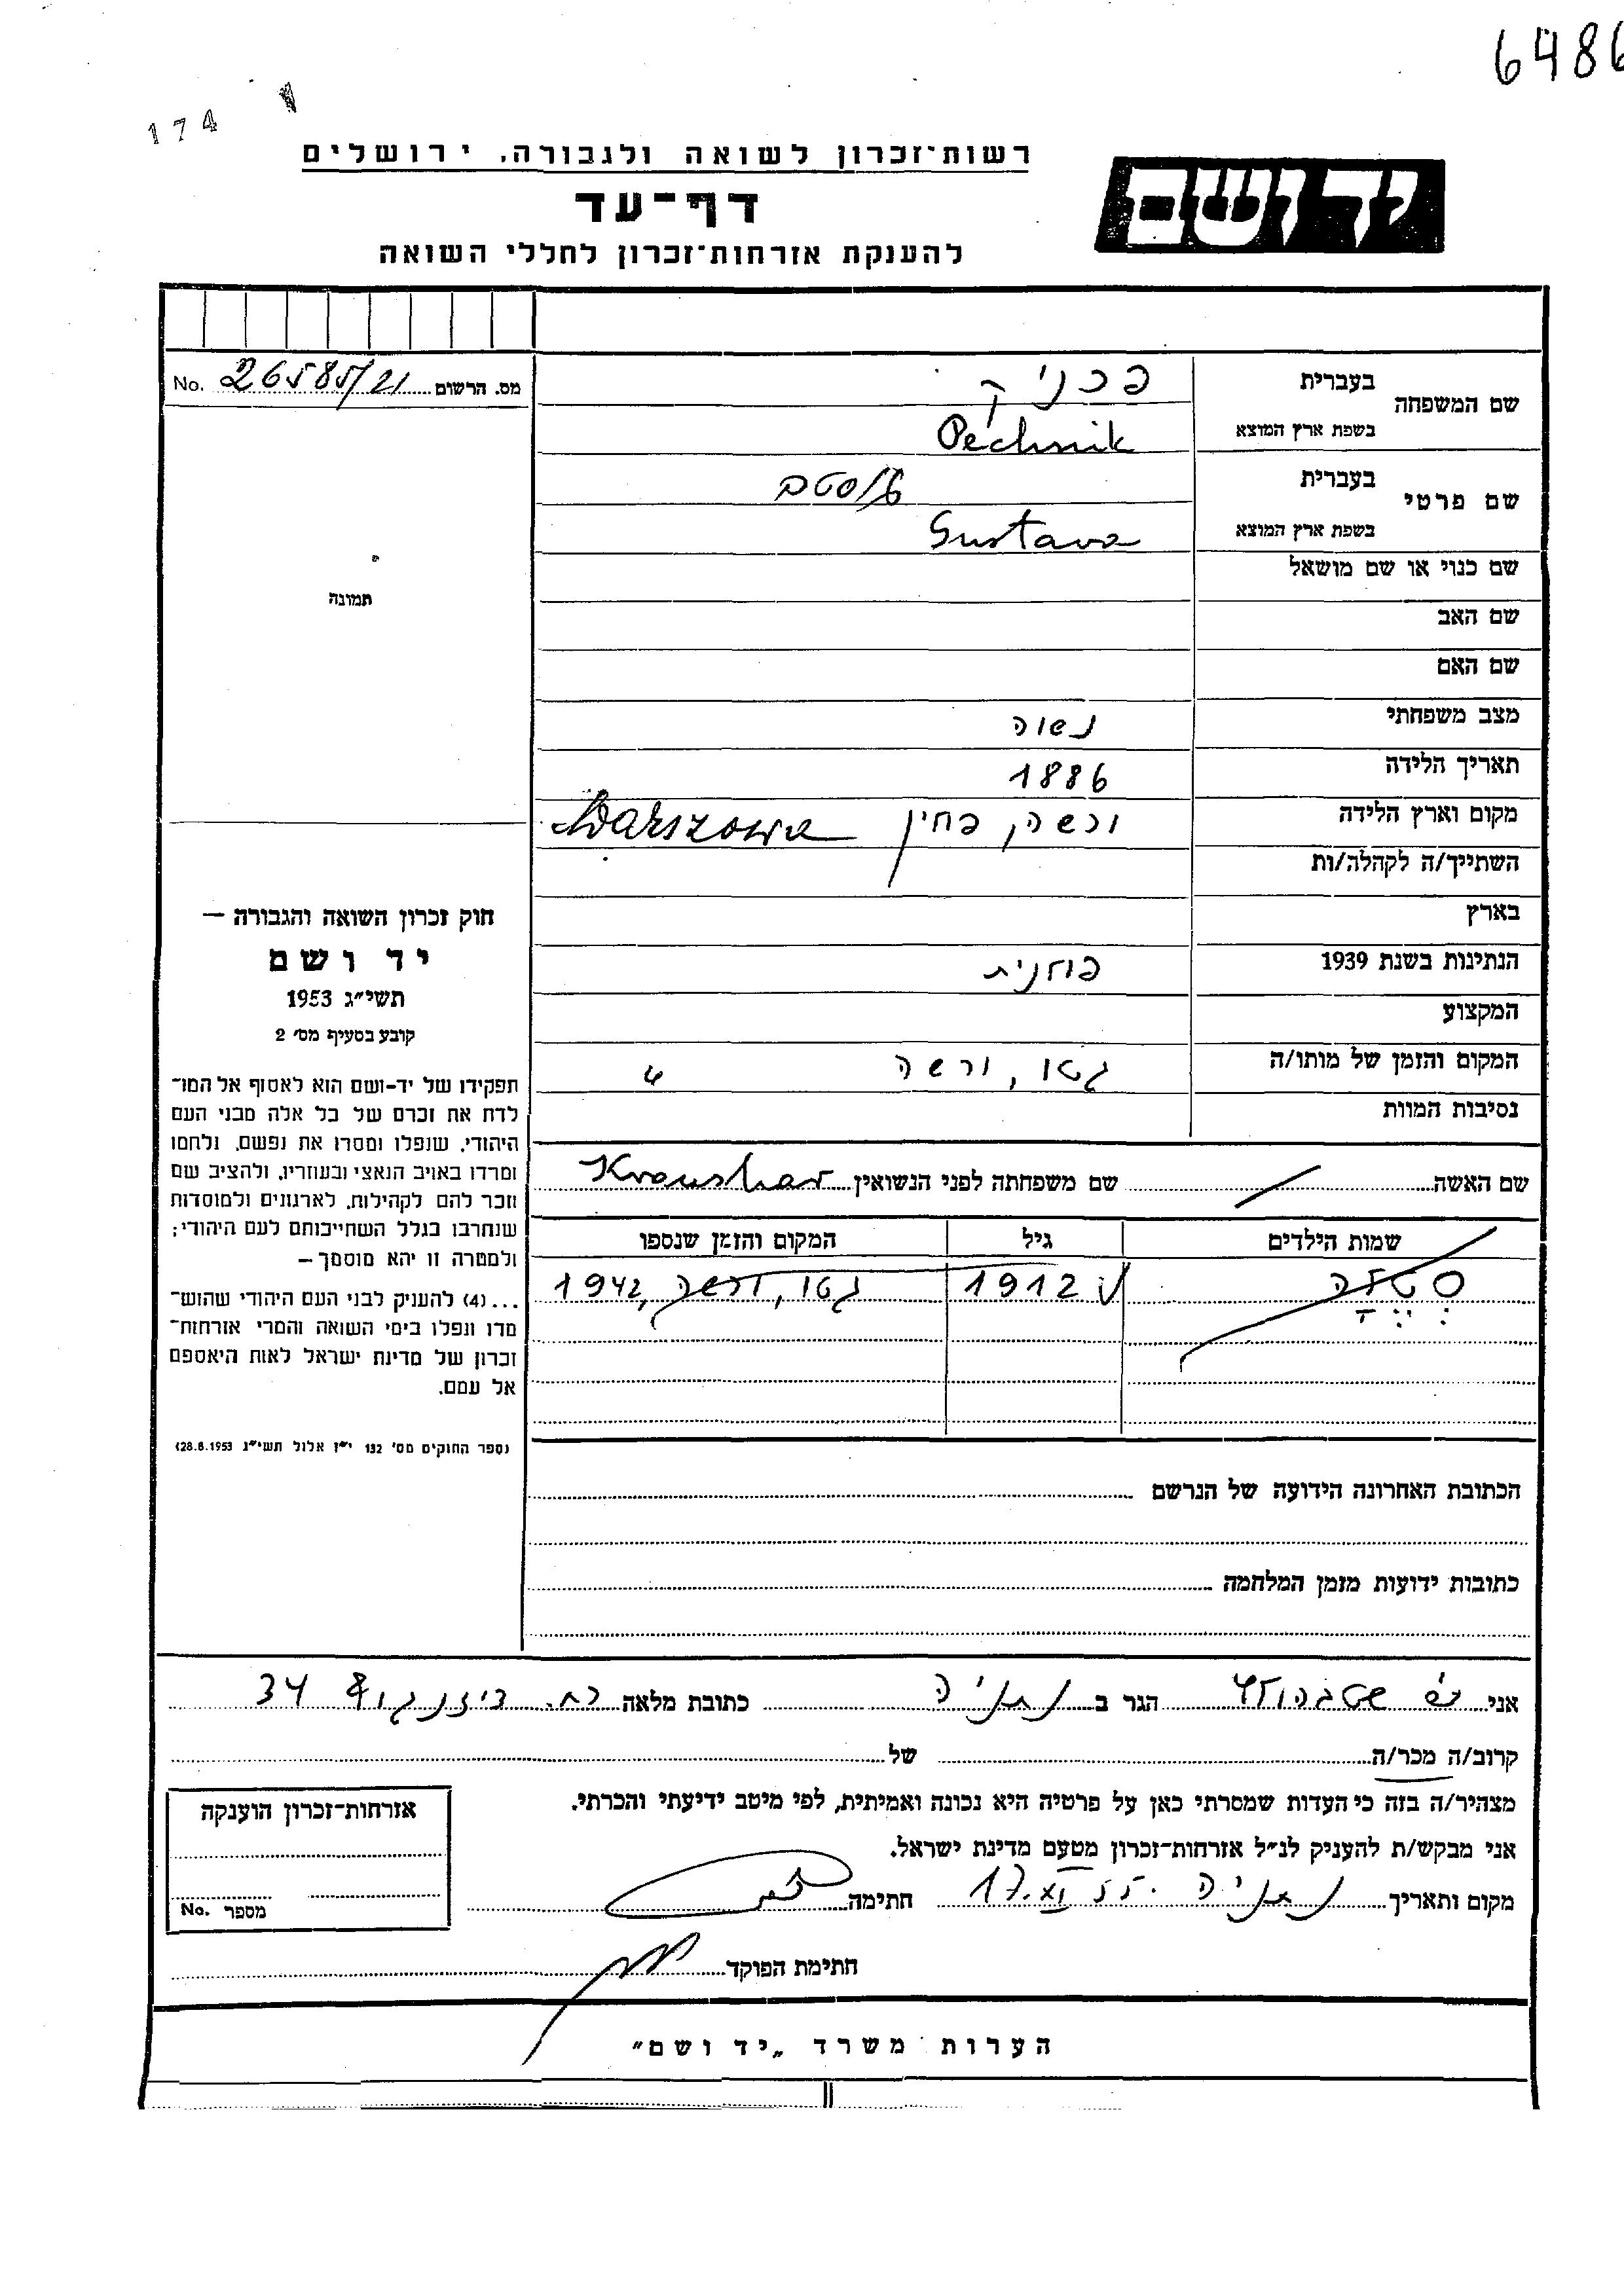 6486
174
רשות־זכרון לשואה ולגבורה, ירושלים
יד ושם
דף־עד
להענקת אזרחות־זכרון לחללי השואה
מס. הרשום 26585/21 No.
שם המשפחה
בעברית פכניק
בשפת ארץ המוצא Pechnik
שם פרטי
בעברית
בשפת ארץ המוצא Gustava
שם כנוי או שם מושאל
תמונה
שם האב
שם האם
מצב משפחתי נשוה
תאריך הלידה 1886
מקום וארץ הלידה ורשה, פולין Warszowa
השתייך/ה לקהלה/ות
בארץ
הנתינות בשנת 1939 פולנית
המקצוע
המקום והזמן של מותו/ה גטו, ורשה
נסיבות המוות
חוק זכרון השואה והגבורה —
יד ושם
תשי״ג 1953
קובע בסעיף מס׳ 2
תפקידו של יד-ושם הוא לאסוף אל המו־
לדת את זכרם של כל אלה מבני העם
היהודי, שנפלו ומסרו את נפשם, נלחמו
ומרדו באויב הנאצי ובעוזריו, ולהציב שם
וזכר להם לקהילות, לארגונים ולמוסדות
שנחרבו בגלל השתייכותם לעם היהודי;
ולמטרה זו יהא מוסמך —
...(4) להעניק לבני העם היהודי שהוש־
מדו ונפלו בימי השואה והמרי אזרחות־
זכרון של מדינת ישראל לאות היאספם
אל עמם.
(ספר החוקים מס׳ 132 י״ז אלול תשי״ג 28.8.1953)
שם האשה שם משפחתה לפני הנשואין Kraushar
שמות הילדים גיל המקום והזמן שנספו
1912 גטו, ורשה, 1942
הכתובת האחרונה הידועה של הנרשם
כתובות ידועות מזמן המלחמה
אני הגר ב נתניה כתובת מלאה רח. דיזנגוף 34
קרוב/ה מכר/ה של
מצהיר/ה בזה כי העדות שמסרתי כאן על פרטיה היא נכונה ואמיתית, לפי מיטב ידיעתי והכרתי.
אני מבקש/ת להעניק לנ״ל אזרחות־זכרון מטעם מדינת ישראל.
מקום ותאריך נתניה 17.XI.55 חתימה
חתימת הפוקד
אזרחות־זכרון הוענקה
מספר No.
הערות משרד „יד ושם״